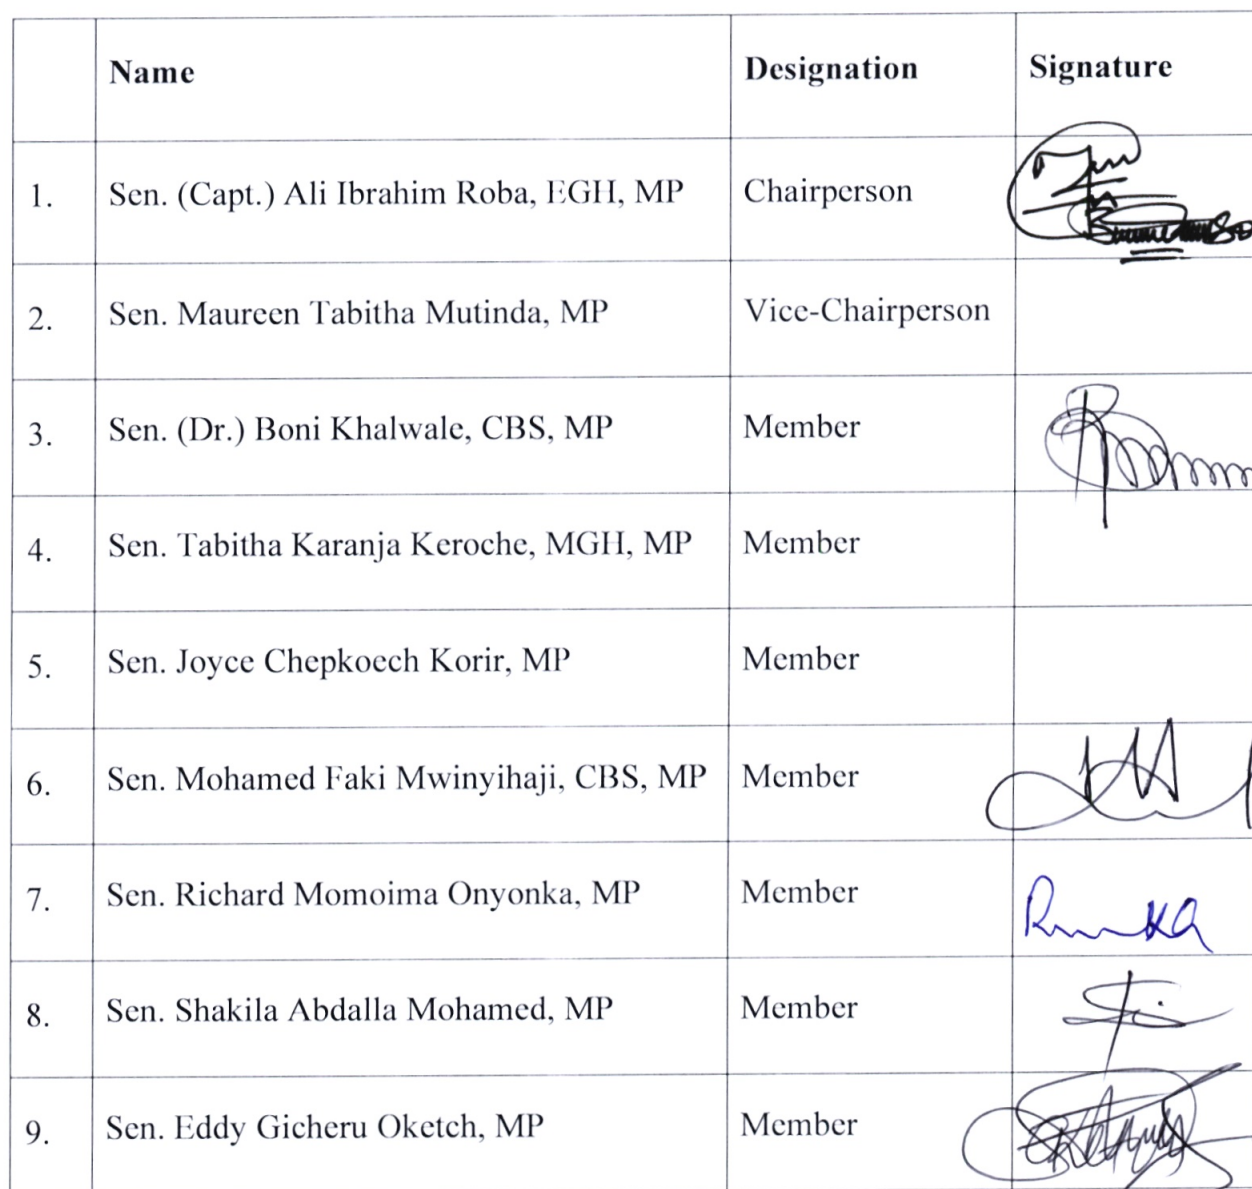 Name Designation Signature
1. Sen. (Capt.) Ali Ibrahim Roba, EGH, MP Chairperson
2. Sen. Maureen Tabitha Mutinda, MP Vice-Chairperson
3. Sen. (Dr.) Boni Khalwale, CBS, MP Member
4. Sen. Tabitha Karanja Keroche, MGH, MP Member
5. Sen. Joyce Chepkoech Korir, MP Member
6. Sen. Mohamed Faki Mwinyihaji, CBS, MP Member
7. Sen. Richard Momoima Onyonka, MP Member
8. Sen. Shakila Abdalla Mohamed, MP Member
9. Sen. Eddy Gicheru Oketch, MP Member